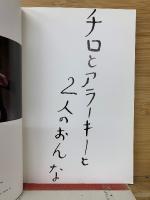 チロとアラーキーと
2人のおんな